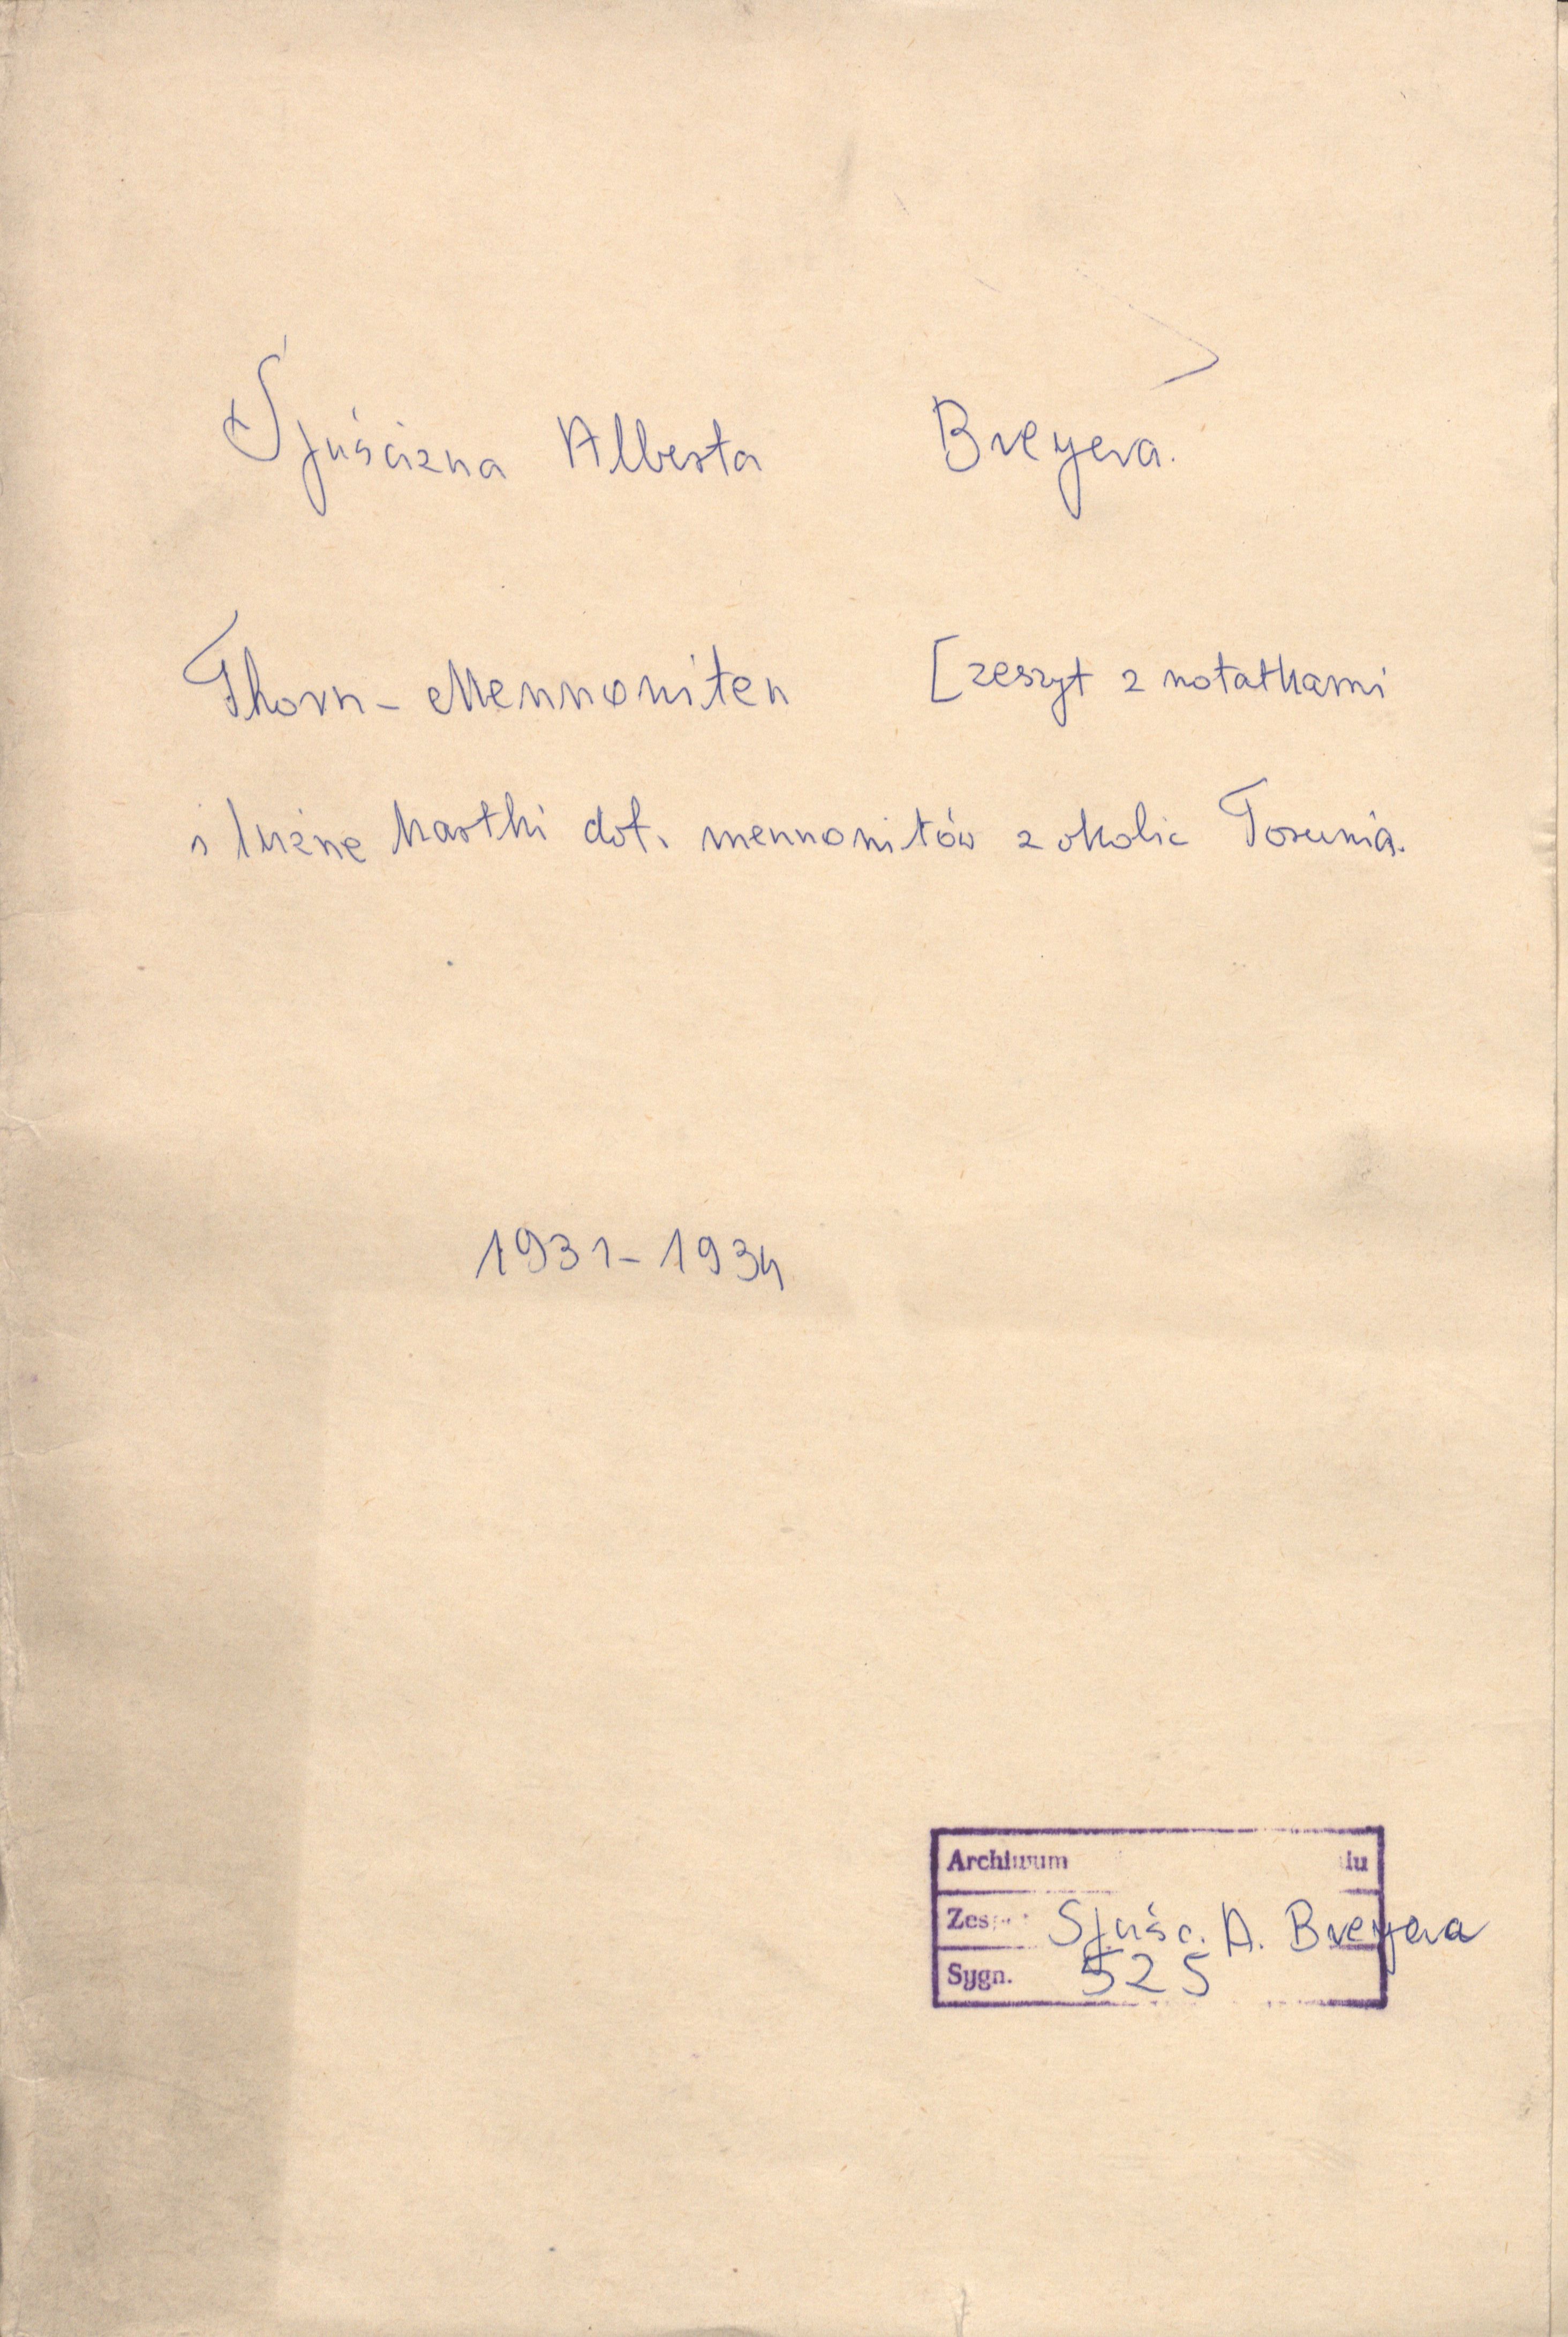 Spuścizna Alberta Breyera.
Thorn - Mennoniten [zeszyt z notatkami
i luźne kartki dot. mennonitów z okolic Torunia.
1931-1934
Archiwum iu
Zes Spuśc. A. Breyera
Sygn. 525